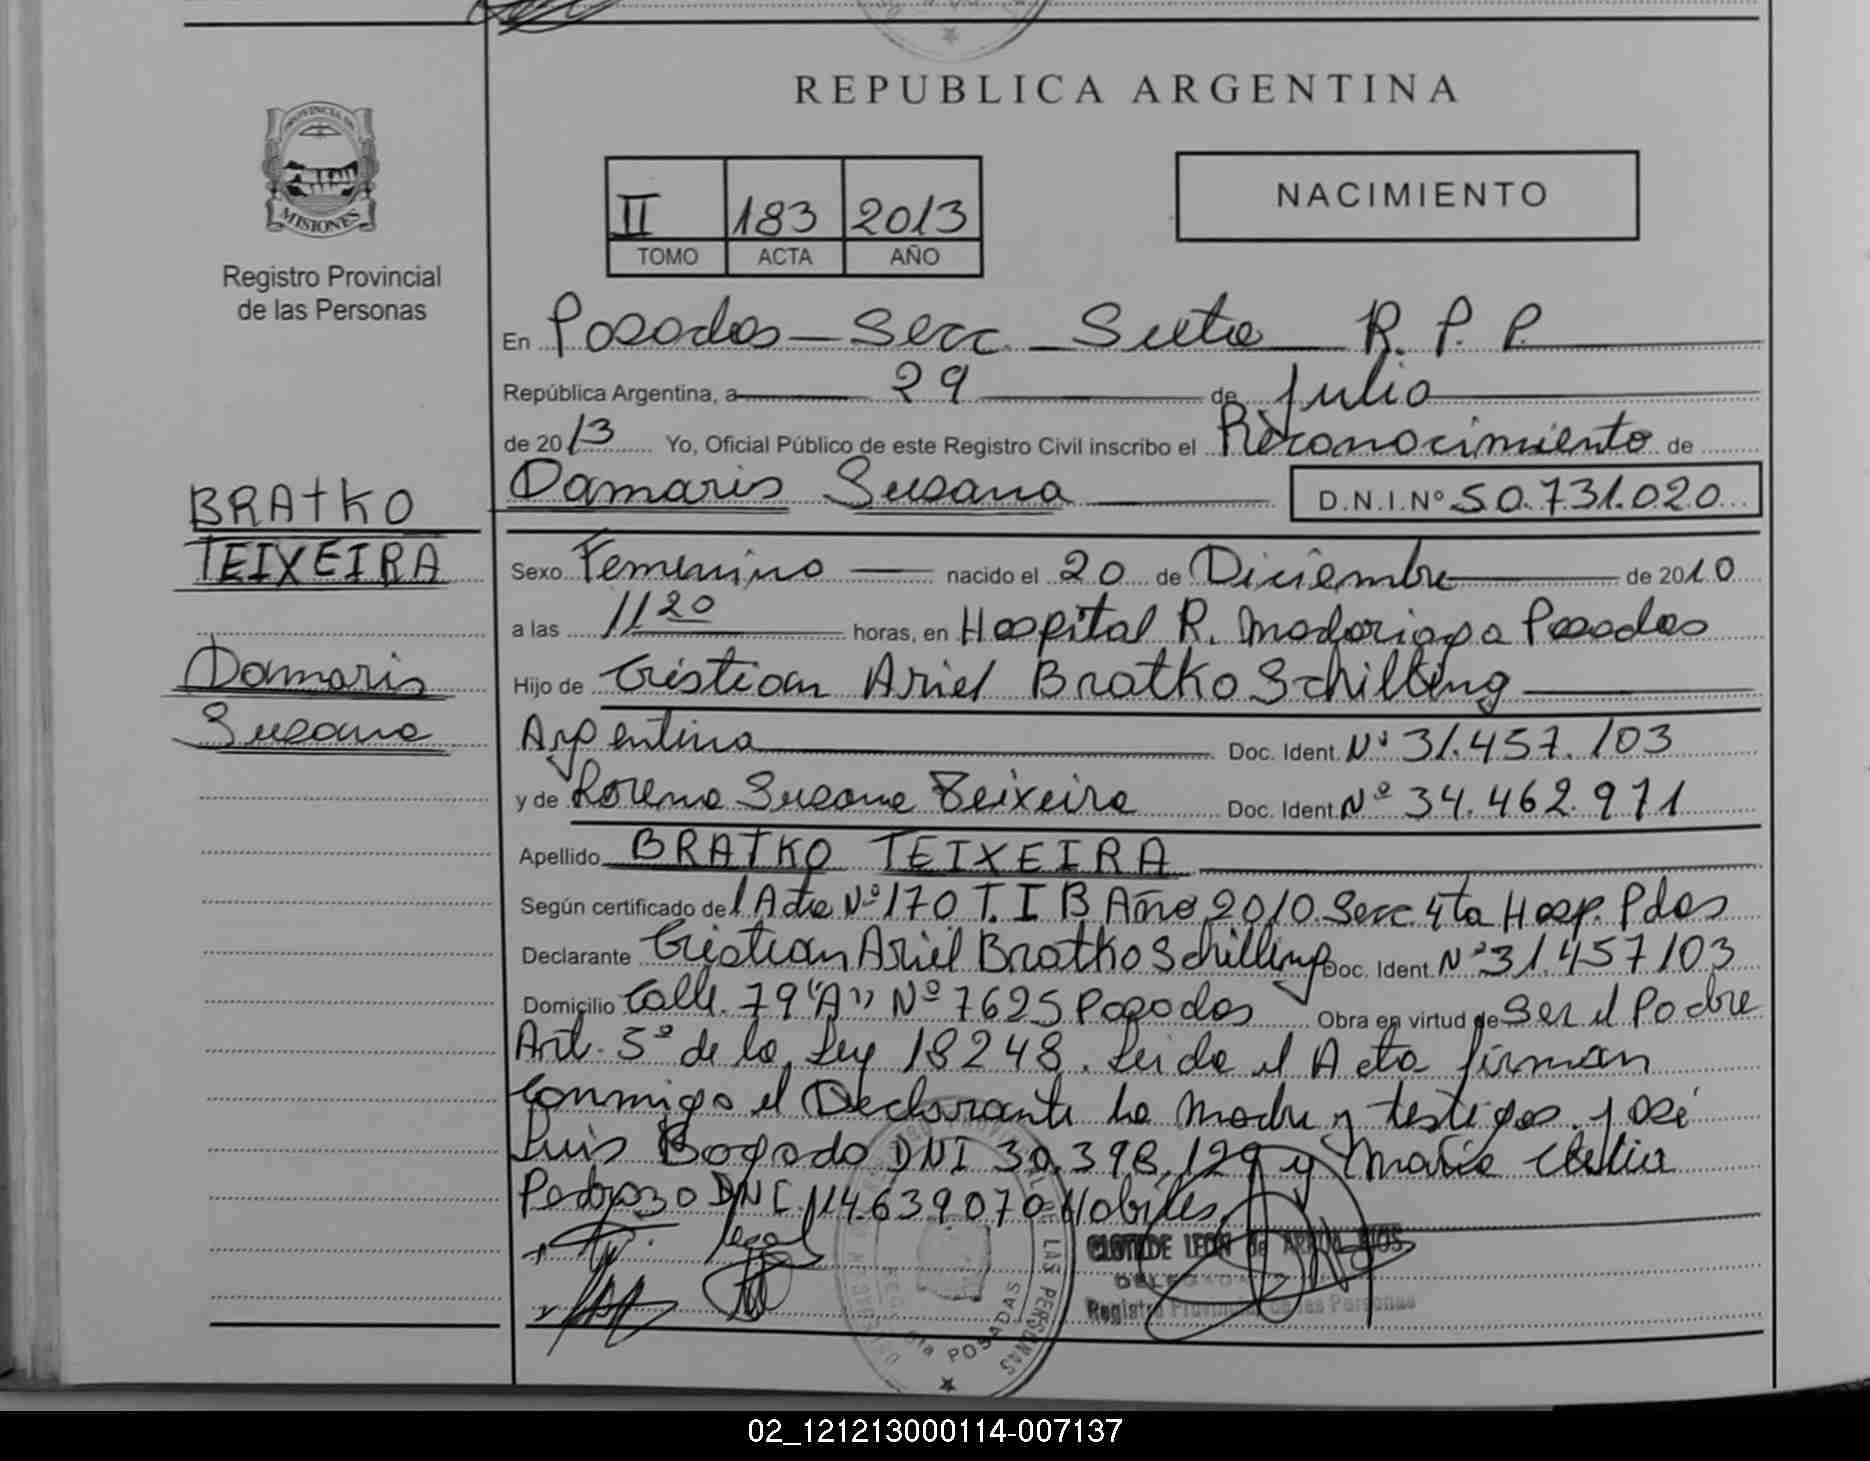 REPUBLICA ARGENTINA
PROVINCIA DE
MISIONES
Registro Provincial
de las Personas
II 183 2013
TOMO ACTA AÑO
NACIMIENTO
En Posadas - Secc. Sexta R. P. P.
República Argentina, a 29 de Julio
de 2013 Yo, Oficial Público de este Registro Civil inscribo el Reconocimiento de
Damaris Susana D.N.I.Nº 50.731.020
BRATKO
TEIXEIRA
Damaris
Susana
Sexo Femenino nacido el 20 de Diciembre de 2010
a las 11 20 horas, en Hospital R. Madariaga Posadas
Hijo de Cristian Ariel Bratko Schilling
Argentina Doc. Ident. Nº 31.457.103
y de Lorena Susana Teixeira Doc. Ident. Nº 34.462.971
Apellido BRATKO TEIXEIRA
Según certificado del Acta Nº 170 T. I B Año 2010 Secc 4ta Hosp. Pdas
Declarante Cristian Ariel Bratko Schilling Doc. Ident. Nº 31.457103
Domicilio Calle 79 "A" Nº 7625 Posadas Obra en virtud de Ser el Padre
Art. 5º de la Ley 18248. Leida el Acta firman
conmigo el Declarante la Madre y testigos José
Luis Bogado DNI 30.398.129 y María Clelia
Pedrozo DNI 14.639.070 Hábiles.
legal
CLOTILDE LEON de
DELEGADA
Registro Provincial de las Personas
DE LAS PERSONAS
POSADAS
02_121213000114-007137